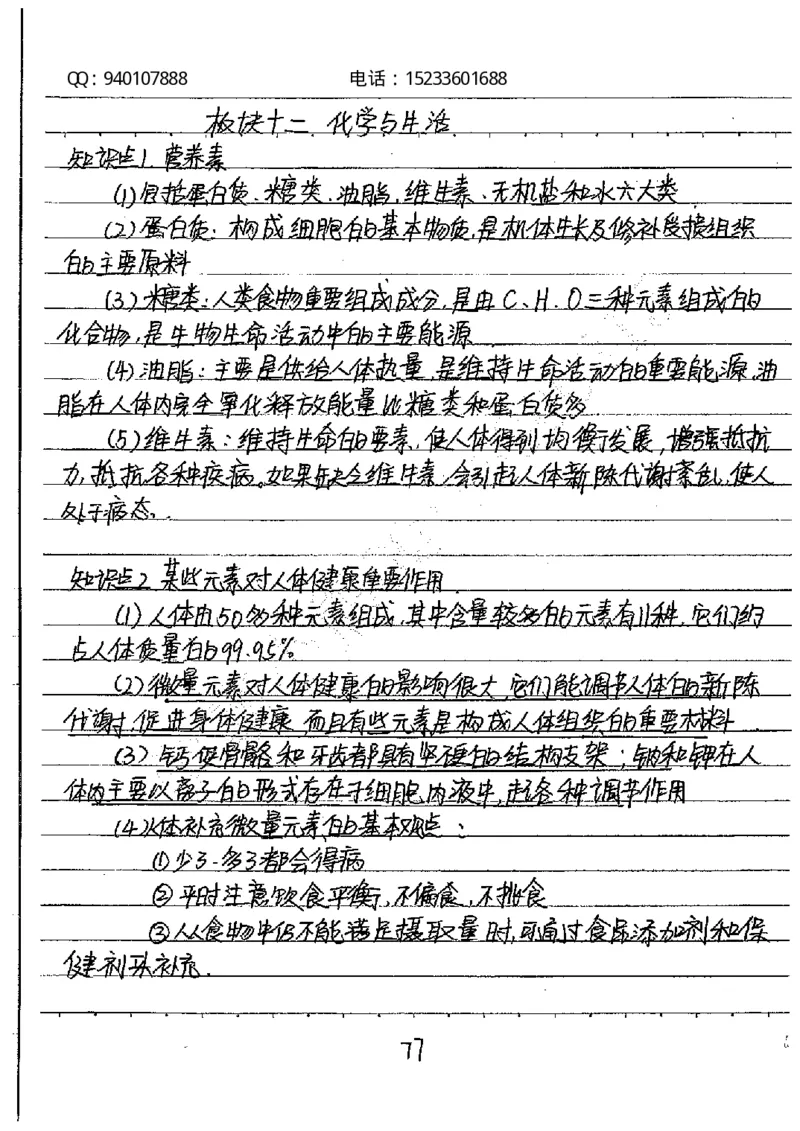 QQ：940107888 电话：15233601688
板块十二 化学与生活
知识点1. 营养素
(1)包括蛋白质、糖类、油脂、维生素、无机盐和水六大类
(2)蛋白质：构成细胞的基本物质，是机体生长及修补受损组织
的主要原料
(3)糖类：人类食物重要组成成分，是由C、H、O三种元素组成的
化合物，是生物生命活动中的主要能源
(4)油脂：主要是供给人体热量，是维持生命活动的重要能源，油
脂在人体内完全氧化释放能量比糖类和蛋白质多
(5)维生素：维持生命的要素，使人体得到均衡发展，增强抵抗
力，抵抗各种疾病。如果缺乏维生素，会引起人体新陈代谢紊乱，使人
处于病态.
知识点2 某些元素对人体健康重要作用
(1)人体由50多种元素组成，其中含量较多的元素有11种，它们约
占人体质量的99.95%
(2)微量元素对人体健康的影响很大，它们能调节人体的新陈
代谢，促进身体健康，而且有些元素是构成人体组织的重要材料
(3)钙使骨骼和牙齿都具有坚硬的结构支架；钠和钾在人
体内主要以离子的形式存在于细胞内液中，起各种调节作用
(4)人体补充微量元素的基本观点：
①少了-多了都会得病
②平时注意饮食平衡，不偏食，不挑食
③从食物中仍不能满足摄取量时，可通过食品添加剂和保
健剂来补充.
77